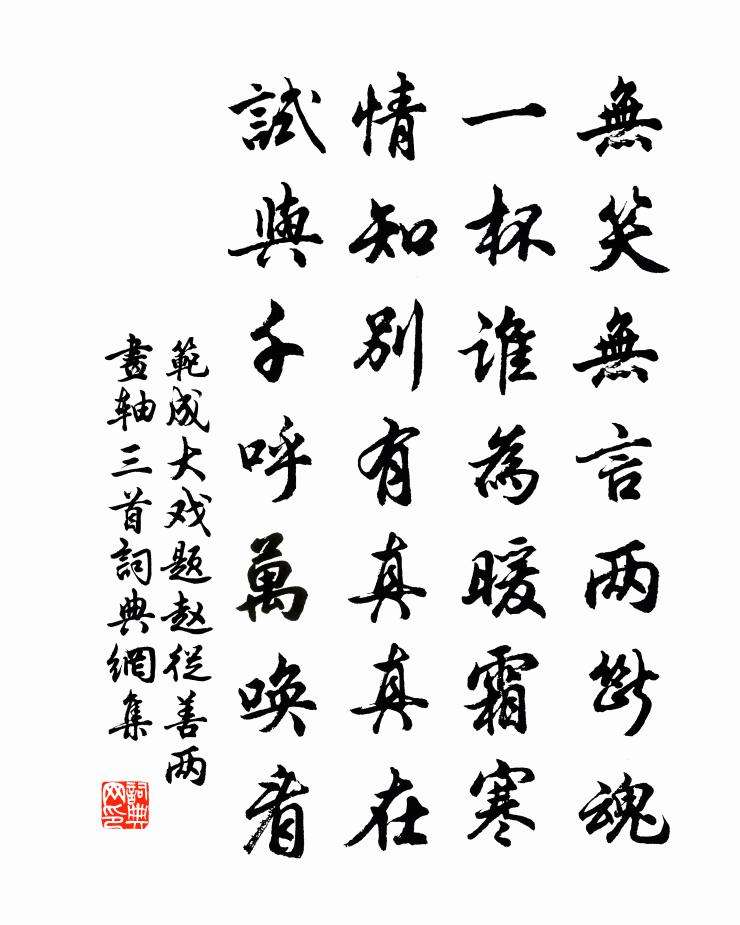 無笑無言两斷魂
一杯誰為暖霜寒
情知別有真真在
試與千呼萬唤看
範成大戏题赵從善两
畫轴三首詞典網集
詞典
网印